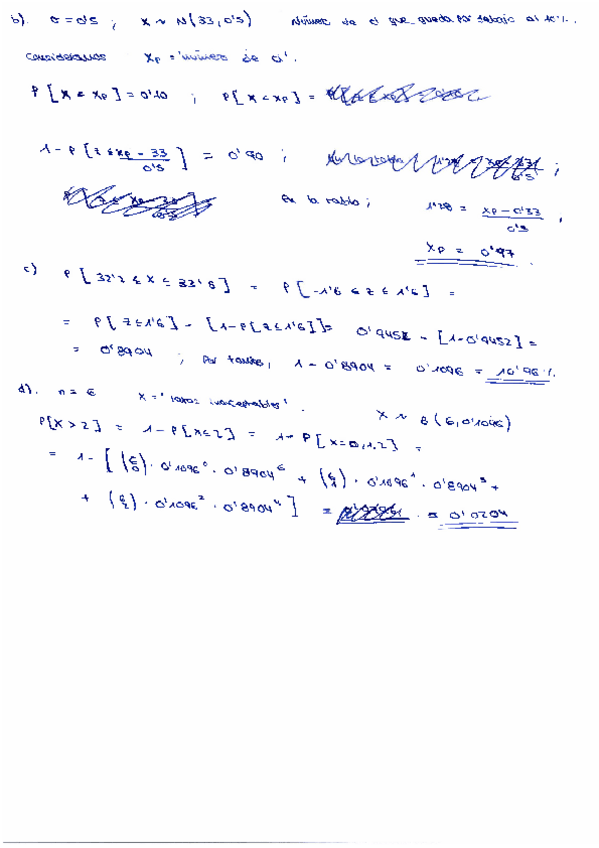 b). σ = 0'5 ; X ~ N(33, 0'5) Número de cl que queda por debajo al 10%.
Consideramos Xp = 'número de cl'.
P[X ≤ xp] = 0'10 ; P[X < xp] =
1 - P[Z ≤ xp - 33 / 0'5] = 0'90 ;
En la tabla ; 1'28 = xp - 0'33 / 0'5 ,
xp = 0'97 .
c) P[32'2 ≤ X ≤ 33'8] = P[-1'6 ≤ Z ≤ 1'6] =
= P[Z ≤ 1'6] - [1 - P[Z ≤ 1'6]] = 0'9452 - [1 - 0'9452] =
= 0'8904 ; Por tanto, 1 - 0'8904 = 0'1096 = 10'96 %.
d). n = 6 X = 'latas inaceptables'. X ~ B(6, 0'1096)
P[X > 2] = 1 - P[X ≤ 2] = 1 - P[X = 0, 1, 2] =
= 1 - [(6 0) · 0'1096^0 · 0'8904^6 + (6 1) · 0'1096^1 · 0'8904^5 +
+ (6 2) · 0'1096^2 · 0'8904^4] = = 0'0204